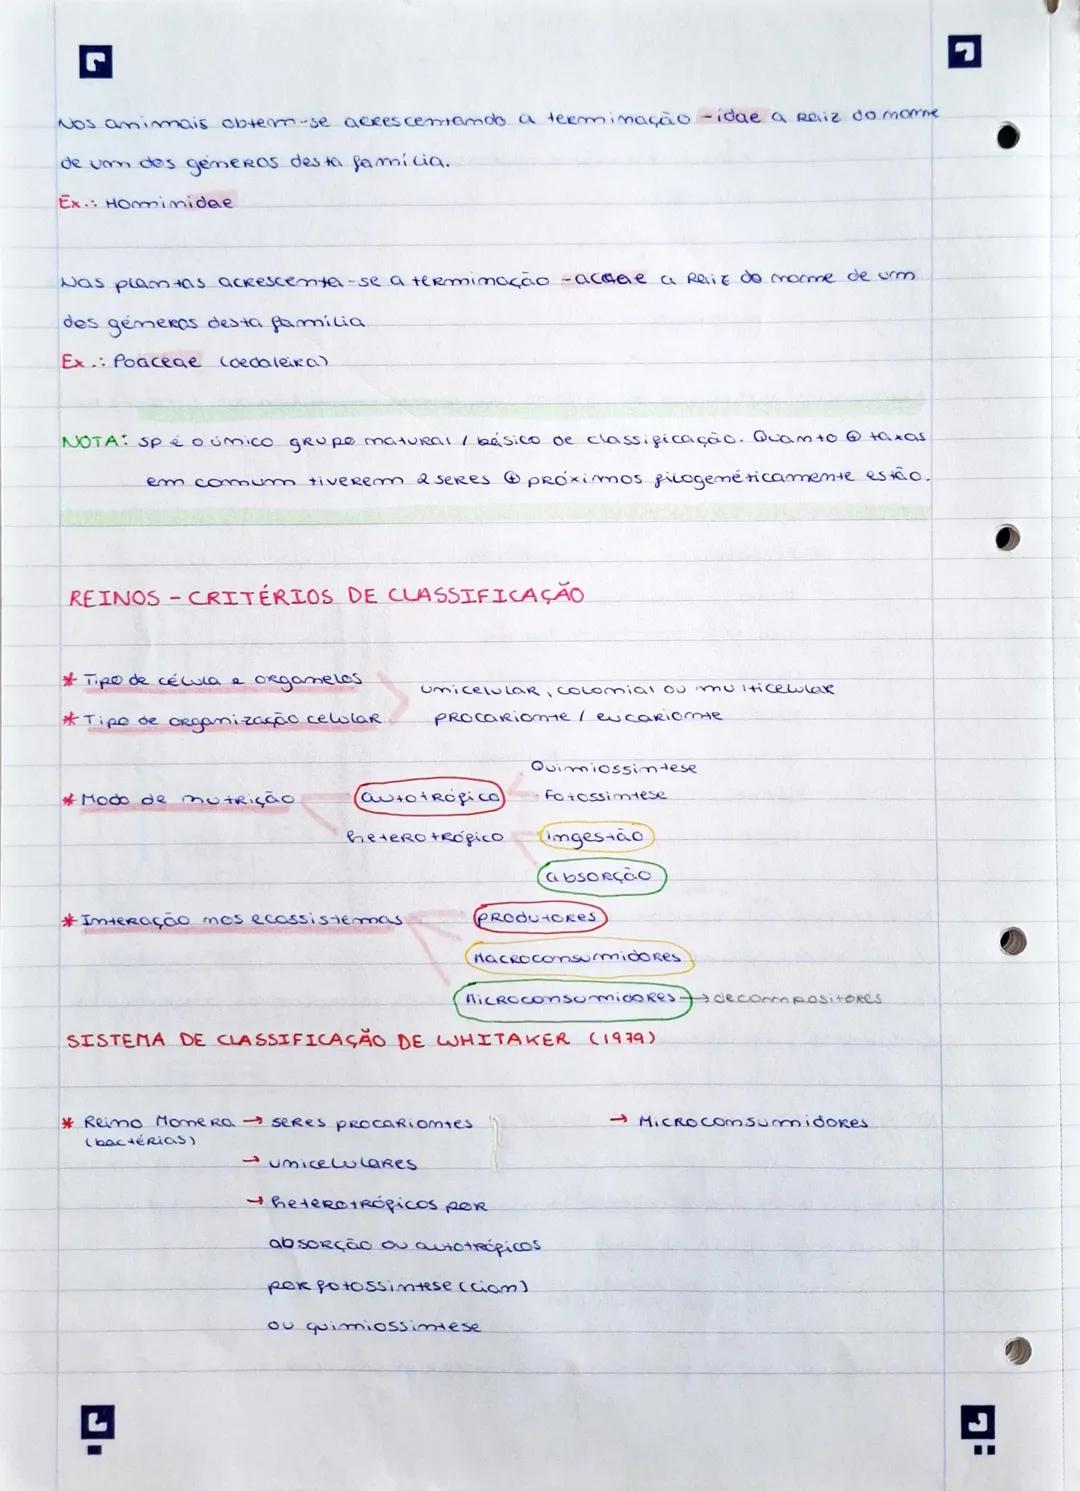 Nos animais obtem-se acrescentando a terminação -idae a Raiz do nome
de um dos géneros desta família.
Ex.: Hominidae
Nas plantas acrescenta-se a terminação -aceae a Raiz do nome de um
dos géneros desta família
Ex.: Poaceae (dedaleira)
NOTA: sp é o único grupo natural / básico de classificação. Quanto ⊕ taxas
em comum tiverem 2 seres ⊕ próximos filogenéticamente estão.
REINOS - CRITÉRIOS DE CLASSIFICAÇÃO
* Tipo de célula e organelos
unicelular, colonial ou multicelular
* Tipo de organização celular
procarionte / eucarionte
Quimiossintese
* Modo de nutrição autotrófico Fotossintese
heterotrófico Ingestão
absorção
* Interação nos ecossistemas produtores
Macroconsumidores
Microconsumidores → decompositores
SISTEMA DE CLASSIFICAÇÃO DE WHITAKER (1979)
* Reino Monera → seres procariontes → Microconsumidores
(bactérias)
→ unicelulares
→ heterotróficos por
absorção ou autotróficos
por fotossintese (cian)
ou quimiossintese